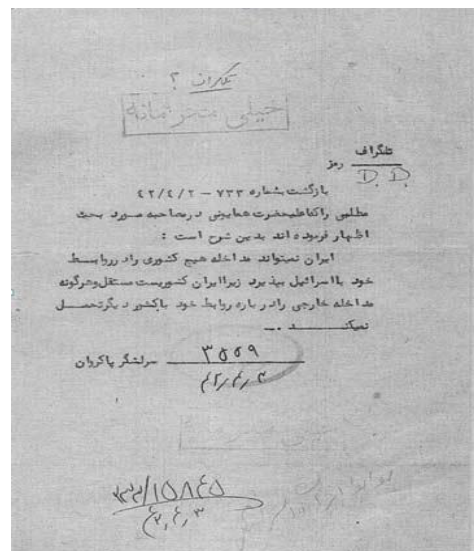 خیلی محرمانه
تلگراف
رمز
D. D.
بازگشت بشماره ۷۳۳ – ۴۲/۴/۲
مطلبی راکه اعلیحضرت همایونی درمصاحبه مورد بحث
اظهار فرموده اند بدین شرح است :
ایران نمیتواند مداخله هیچ کشوری رادرروابط
خود بااسرائیل بپذیرد زیراایران کشوریست مستقل وهرگونه
مداخله خارجی رادرباره روابط خود باکشور دیگرتحمل
نمیکند .
سرلشگر پاکروان
۳۵۵۹
۴۲/۴/۳
۳۲۲/۱۵۸۴۵
۴۲,۴,۳